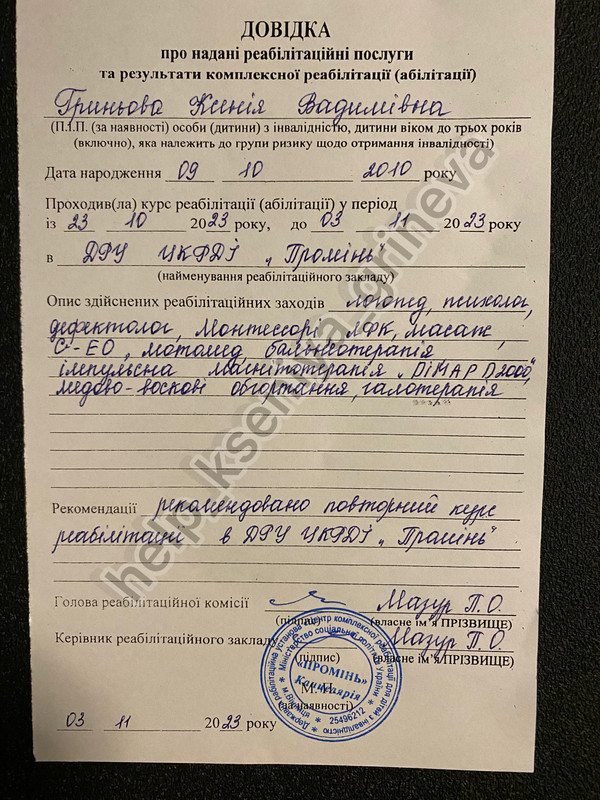 ДОВІДКА
про надані реабілітаційні послуги
та результати комплексної реабілітації (абілітації)
Гриньова Ксенія Вадимівна
(П.І.П. (за наявності) особи (дитини) з інвалідністю, дитини віком до трьох років
(включно), яка належить до групи ризику щодо отримання інвалідності)
Дата народження 09 10 2010 року
Проходив(ла) курс реабілітації (абілітації) у період
із 23 10 2023 року, до 03 11 2023 року
в ДРУ ЦКРДІ „Промінь"
(найменування реабілітаційного закладу)
Опис здійснених реабілітаційних заходів логопед, психолог,
дефектолог, Монтессорі ЛФК, масаж,
С-ЕО, мотомед, бальнеотерапія
імпульсна магнітотерапія „DiMAP D2000",
медово-воскові обгортання, галотерапія
Рекомендації рекомендовано повторний курс
реабілітації в ДРУ ЦКРДІ „Промінь"
Голова реабілітаційної комісії Мазур П.О.
(підпис) (власне ім'я ПРІЗВИЩЕ)
Керівник реабілітаційного закладу Мазур П.О.
(підпис) (власне ім'я ПРІЗВИЩЕ)
М.П.
(за наявності)
03 11 2023 року
Державна реабілітаційна установа Центр комплексної реабілітації для дітей з інвалідністю
Міністерство соціальної політики України
м.Вінниця 25496212
«ПРОМІНЬ»
Канцелярія
help_kseniya_grineva